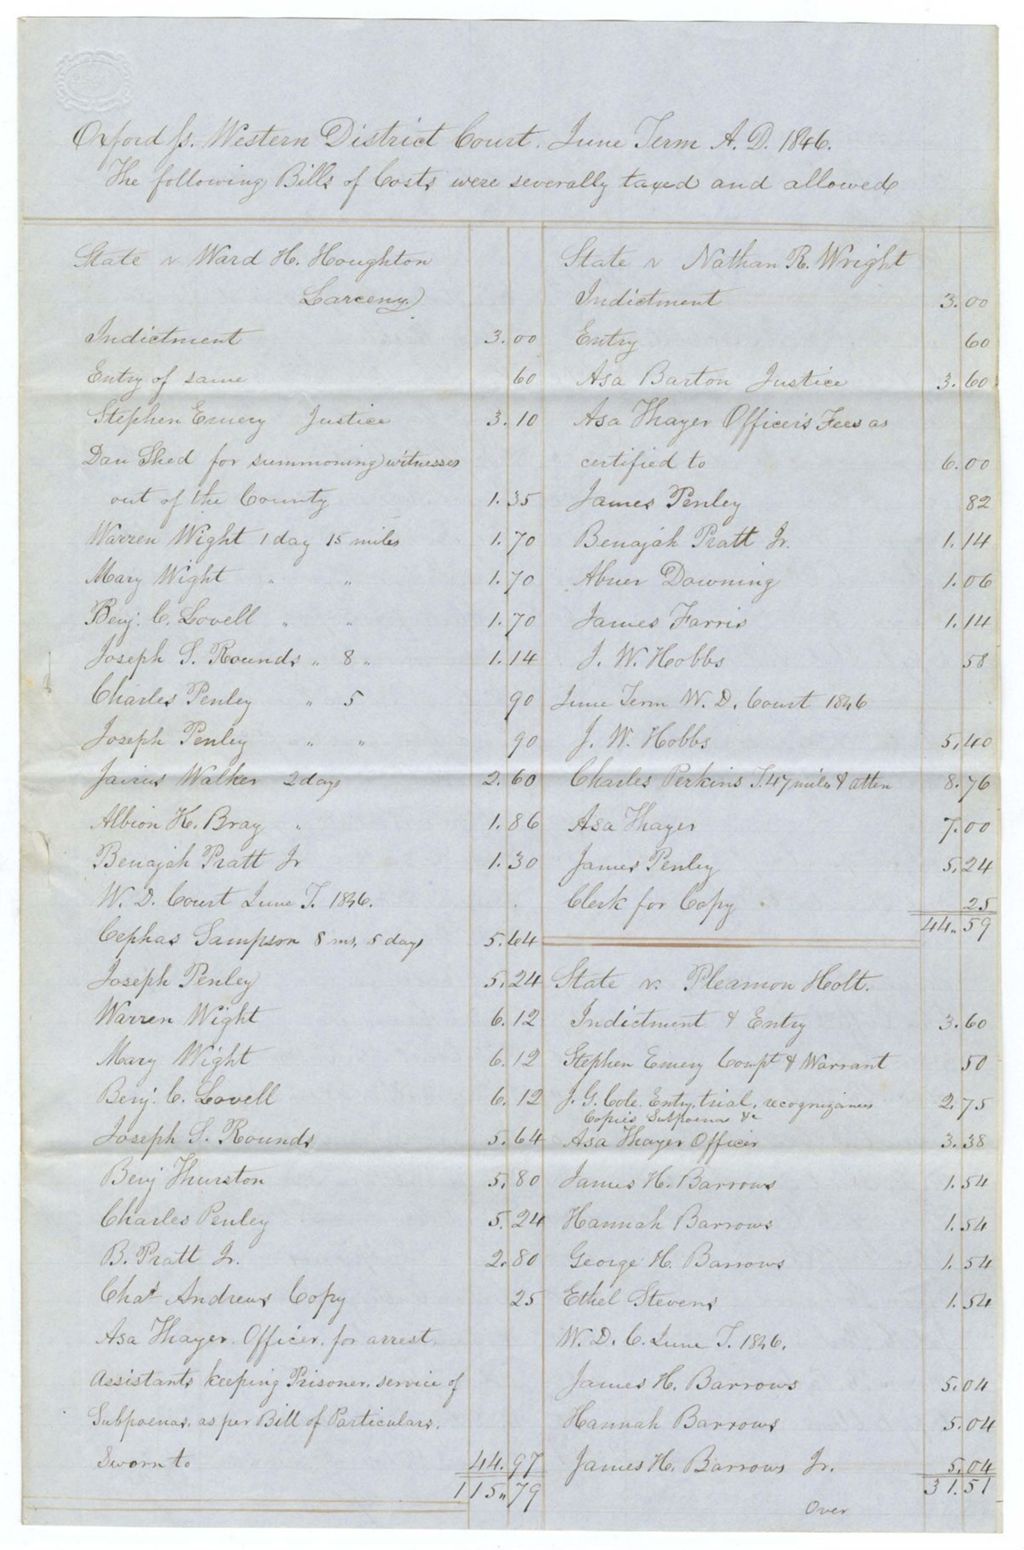 Oxford ss. Western District Court. June Term A. D. 1846.
The following Bills of Costs were severally taxed and allowed
State v Ward H. Houghton
Larceny.
Indictment 3.00
Entry of same 60
Stephen Emery Justice 3.10
Dan Shed for summoning witnesses
out of the County 1.35
Warren Wight 1 day 15 miles 1.70
Mary Wight " " 1.70
Benj. C. Lovell " " 1.70
Joseph S. Rounds " 8 " 1.14
Charles Penley " 5 90
Joseph Penley " " 90
Jairus Walker 2 days 2.60
Albion K. Bray " 1.86
Benajah Pratt Jr 1.30
W. D. Court June T. 1846.
Cephas Sampson 8 ms, 5 days 5.64
Joseph Penley 5.24
Warren Wight 6.12
Mary Wight 6.12
Benj. C. Lovell 6.12
Joseph S. Rounds 5.64
Benj Thurston 5.80
Charles Penley 5.24
B. Pratt Jr. 2.80
Chas Andrews Copy 25
Asa Thayer Officer, for arrest.
Assistants keeping Prisoner, service of
Subpoenas, as per Bill of Particulars.
Sworn to 44.97
115.79
State v Nathan R. Wright
Indictment 3.00
Entry 60
Asa Barton Justice 3.60
Asa Thayer Officer's Fees as
certified to 6.00
James Penley 82
Benajah Pratt Jr. 1.14
Abner Downing 1.06
James Farris 1.14
J. W. Hobbs 58
June Term W. D. Court 1846
J. W. Hobbs 5.40
Charles Perkins T. 47 miles & atten 8.76
Asa Thayer 7.00
James Penley 5.24
Clerk for Copy 25
44.59
State v. Pleamon Holt.
Indictment & Entry 3.60
Stephen Emery Compt & Warrant 50
J. G. Cole Entry, trial, recognizances 2.75
Copies Subpoenas &c
Asa Thayer Officer 3.38
James H. Barrows 1.54
Hannah Barrows 1.54
George H. Barrows 1.54
Ethel Stevens 1.54
W. D. C. June T. 1846.
James H. Barrows 5.04
Hannah Barrows 5.04
James H. Barrows Jr. 5.04
31.51
Over